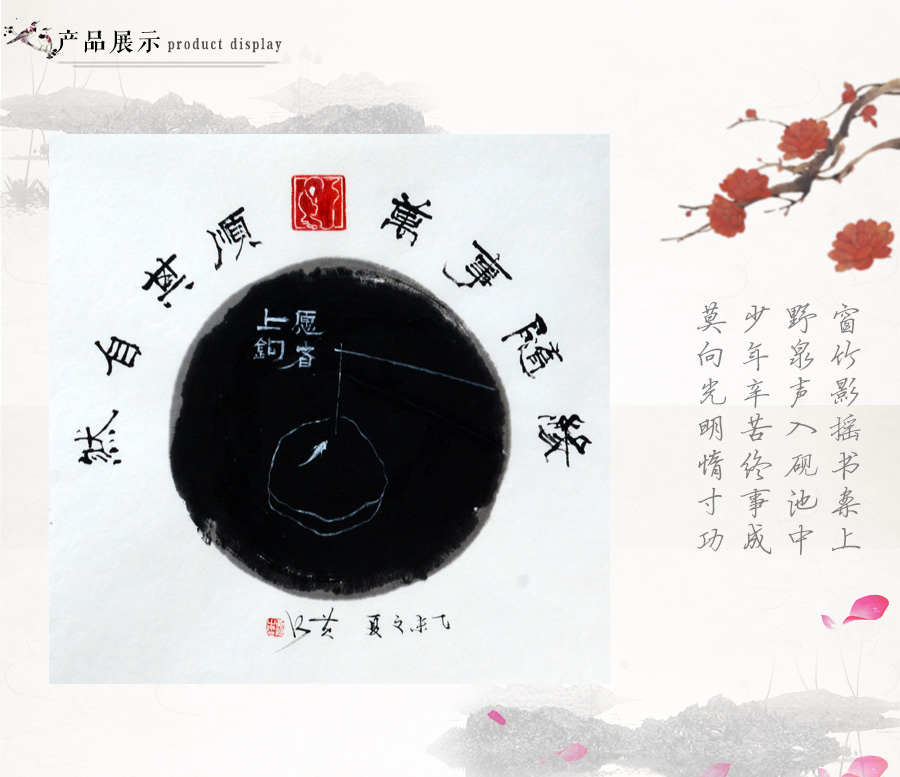 产品展示 product display
萬事隨緣
順其自然
愿者
上鉤
乙未之夏
窗竹影摇书案上
野泉声入砚池中
少年辛苦终事成
莫向光明惰寸功